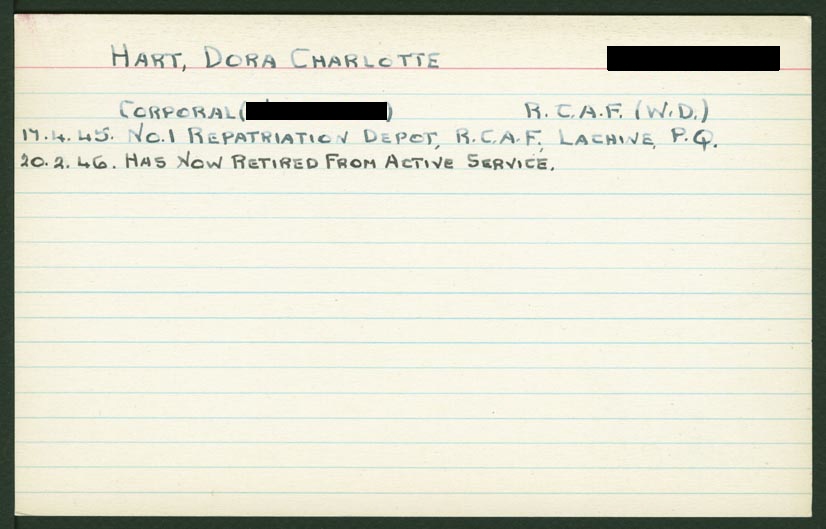 HART, DORA CHARLOTTE
CORPORAL( ) R.C.A.F. (W.D.)
17.4.45. NO.1 REPATRIATION DEPOT, R.C.A.F., LACHINE, P.Q.
20.2.46. HAS NOW RETIRED FROM ACTIVE SERVICE.